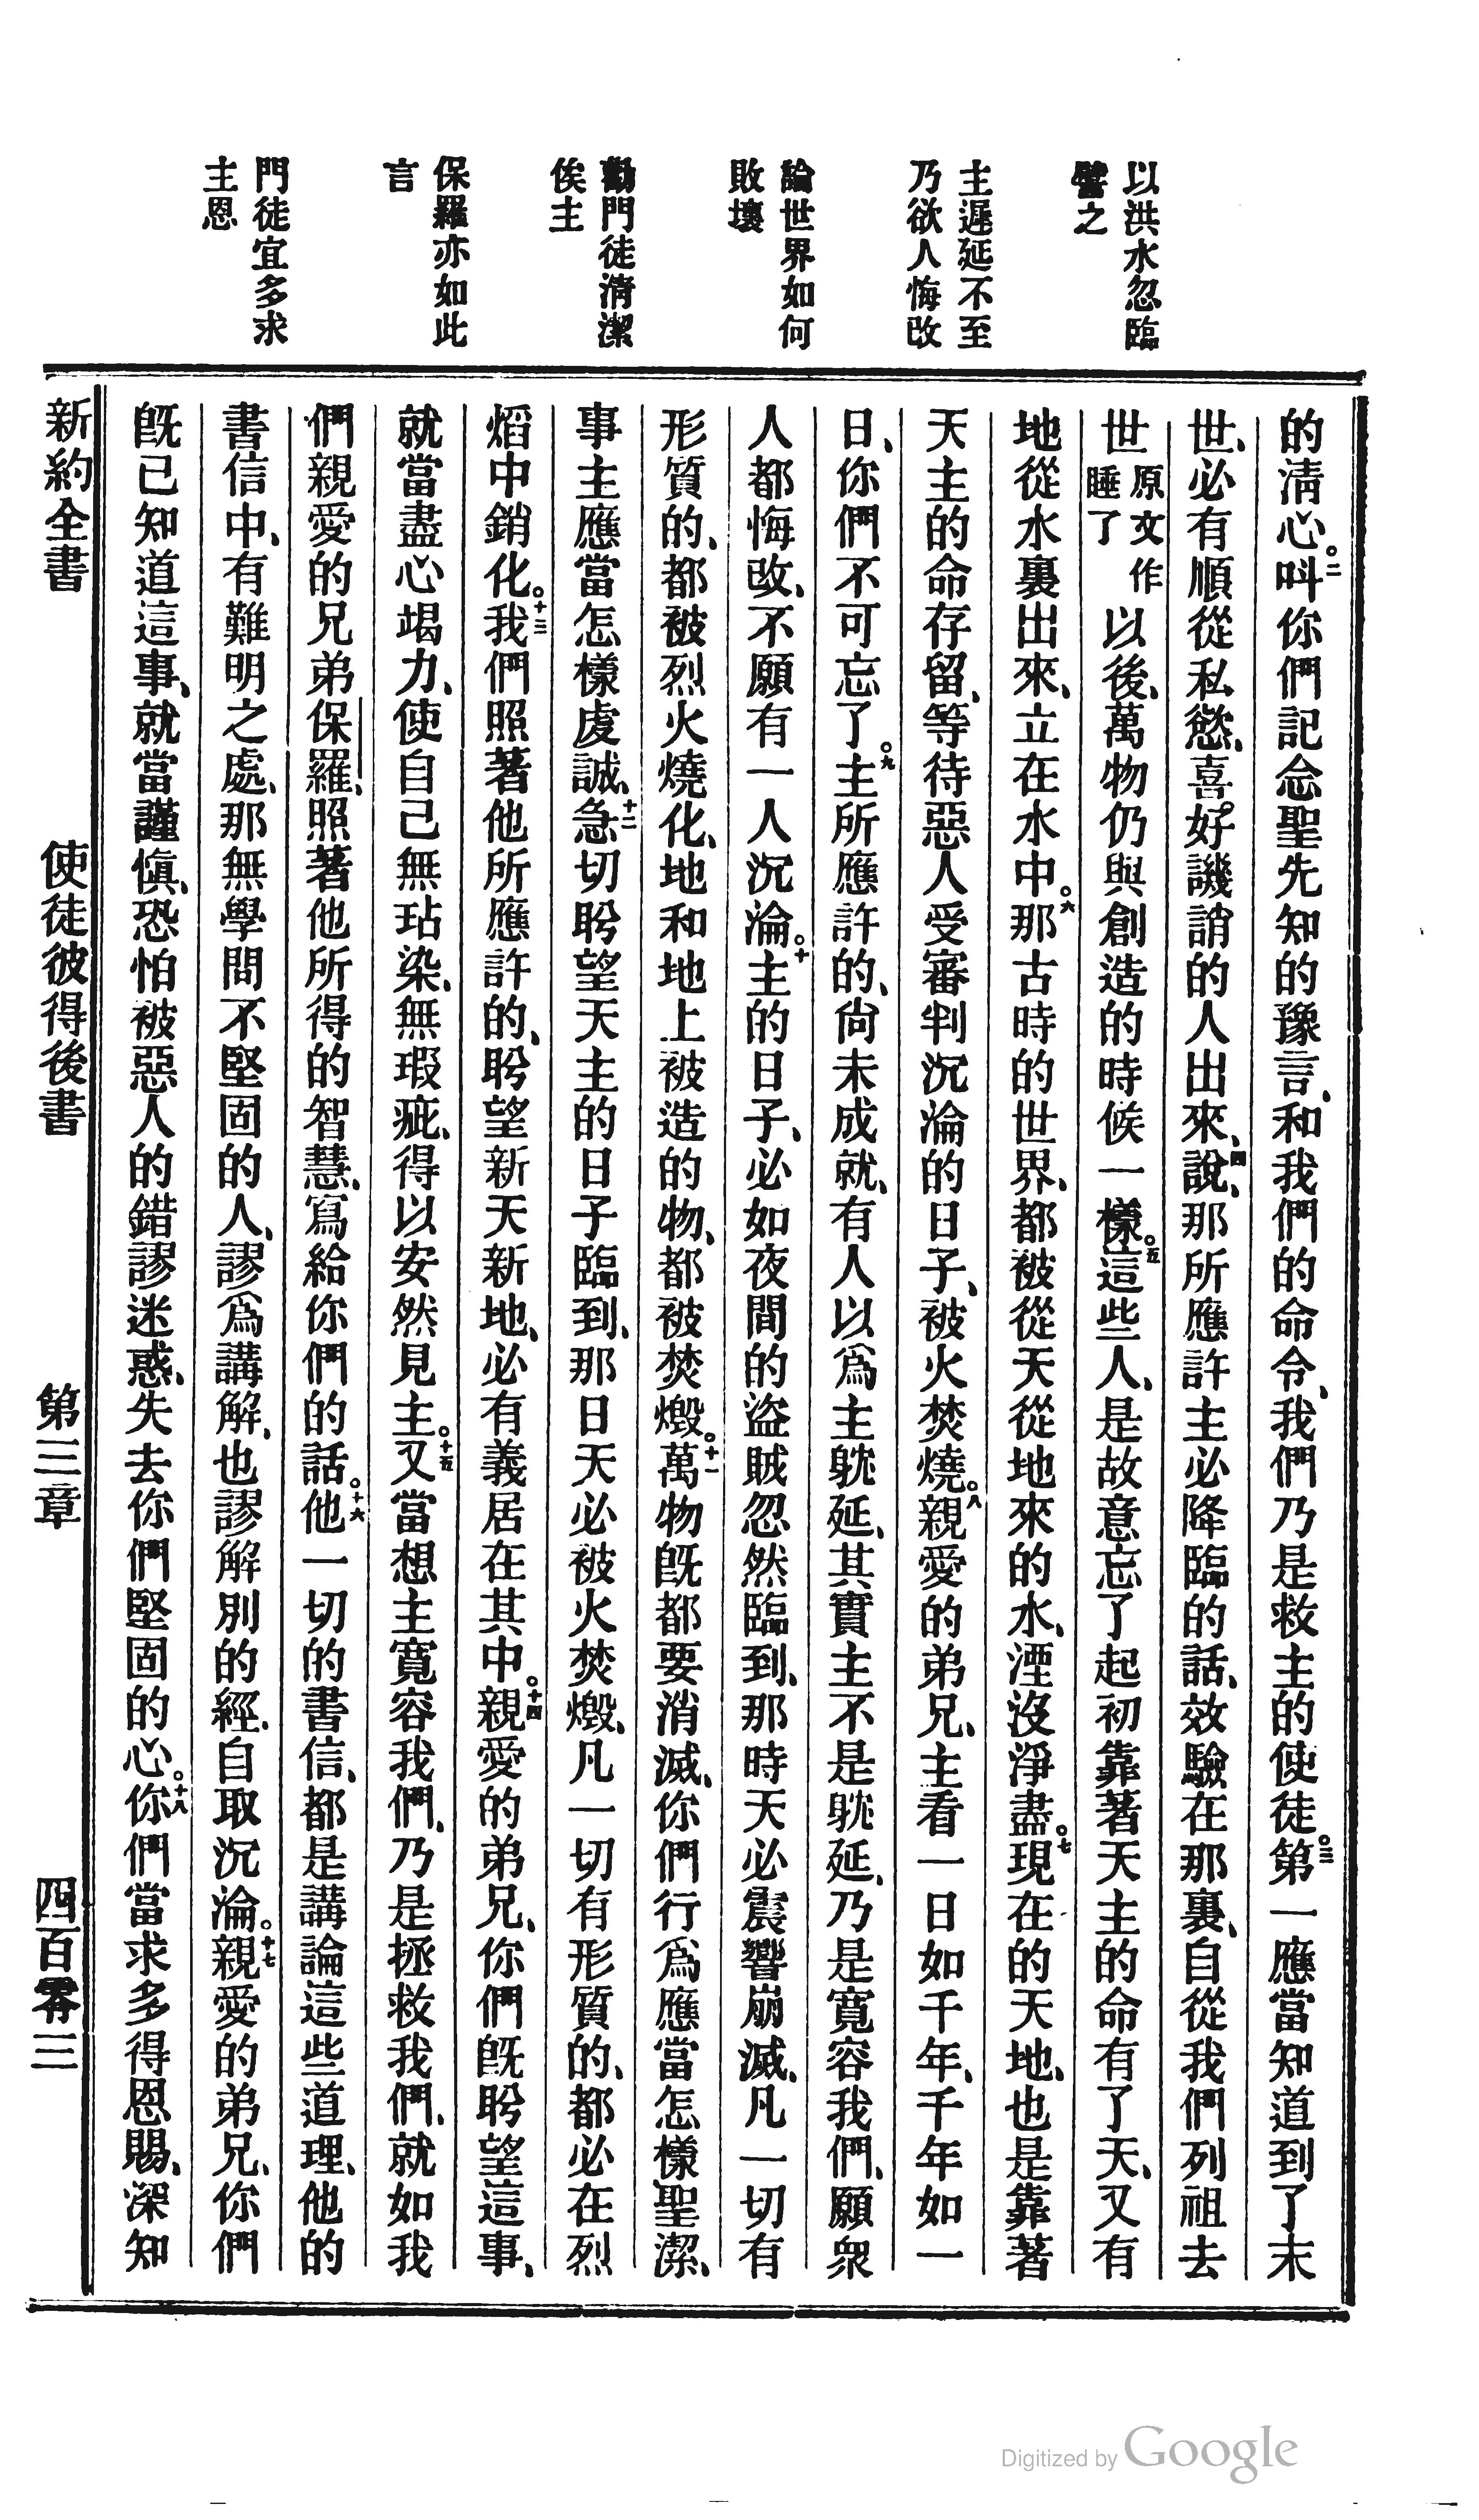 以洪水忽臨
譬之
主遲延不至
乃欲人悔改
論世界如何
敗壞
勸門徒清潔
俟主
保羅亦如此
言
門徒宜多求
主恩
的淸心。二呌你們記念聖先知的豫言、和我們的命令、我們乃是救主的使徒。三第一應當知道到了末
世、必有順從私慾、喜好譏誚的人出來、四說、那所應許主必降臨的話、效驗在那裏、自從我們列祖去
世原文作睡了以後、萬物仍與創造的時候一樣。五這些人、是故意忘了起初靠著天主的命有了天、又有
地從水裏出來、立在水中。六那古時的世界、都被從天從地來的水、湮沒淨盡。七現在的天地、也是靠著
天主的命存留、等待惡人受審判沉淪的日子、被火焚燒。八親愛的弟兄、主看一日如千年、千年如一
日、你們不可忘了。九主所應許的、尙未成就、有人以爲主躭延、其實主不是躭延、乃是寬容我們、願衆
人都悔改、不願有一人沉淪。十主的日子、必如夜間的盜賊忽然臨到、那時天必震響崩滅、凡一切有
形質的、都被烈火燒化、地和地上被造的物、都被焚燬。十一萬物旣都要消滅、你們行爲應當怎樣聖潔、
事主應當怎樣虔誠、十二急切盼望天主的日子臨到、那日天必被火焚燬、凡一切有形質的、都必在烈
熖中銷化。十三我們照著他所應許的、盼望新天新地、必有義居在其中。十四親愛的弟兄、你們旣盼望這事、
就當盡心竭力、使自己無玷染、無瑕疵、得以安然見主。十五又當想主寬容我們、乃是拯救我們、就如我
們親愛的兄弟保羅、照著他所得的智慧、寫給你們的話。十六他一切的書信、都是講論這些道理、他的
書信中、有難明之處、那無學問不堅固的人、謬爲講解、也謬解別的經、自取沉淪。十七親愛的弟兄、你們
旣已知道這事、就當謹愼、恐怕被惡人的錯謬迷惑、失去你們堅固的心。十八你們當求多得恩賜、深知
新約全書 使徒彼得後書 第三章 四百零三
Digitized by Google